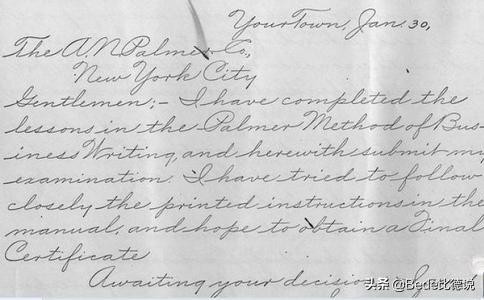 Your Town, Jan. 30,
The A. N. Palmer Co.,
New York City
Gentlemen:- I have completed the
lessons in the Palmer Method of Bus-
iness Writing, and herewith submit my
examination. I have tried to follow
closely the printed instructions in the
manual, and hope to obtain a Final
Certificate
Awaiting your decision, I
头条 @Bede比德锐